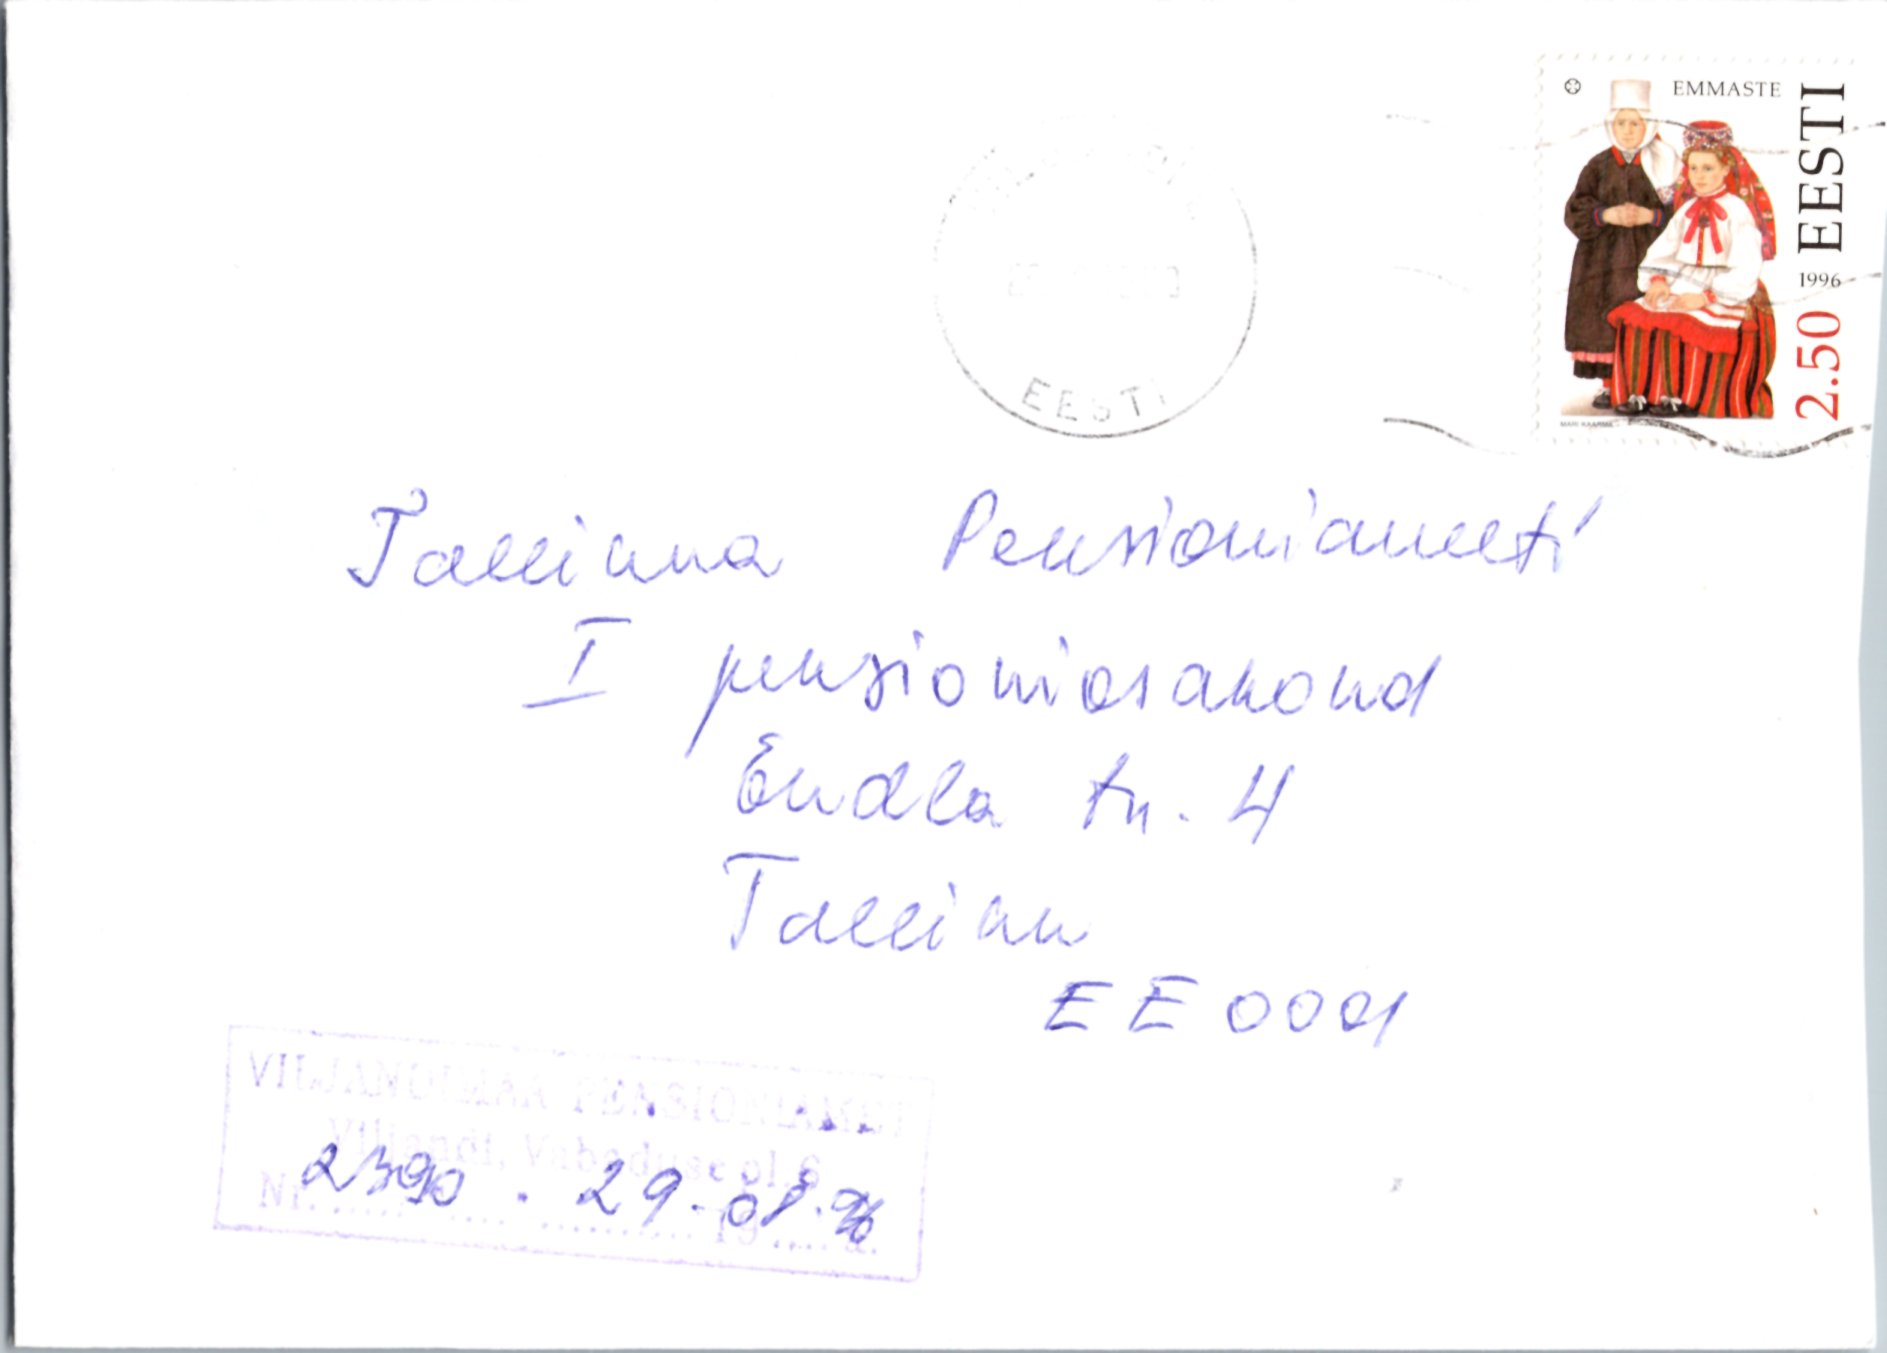 EMMASTE
EESTI
1996
2.50
MARI KAARMA
EESTI
Tallinna Pensioniameti
I pensioniosakond
Endla tn. 4
Tallinn
EE0001
VILJANDIMAA PENSIONIAMET
Viljandi, Vabaduse pl. 6
Nr. 2390 . 29.08.96
19 .... a.